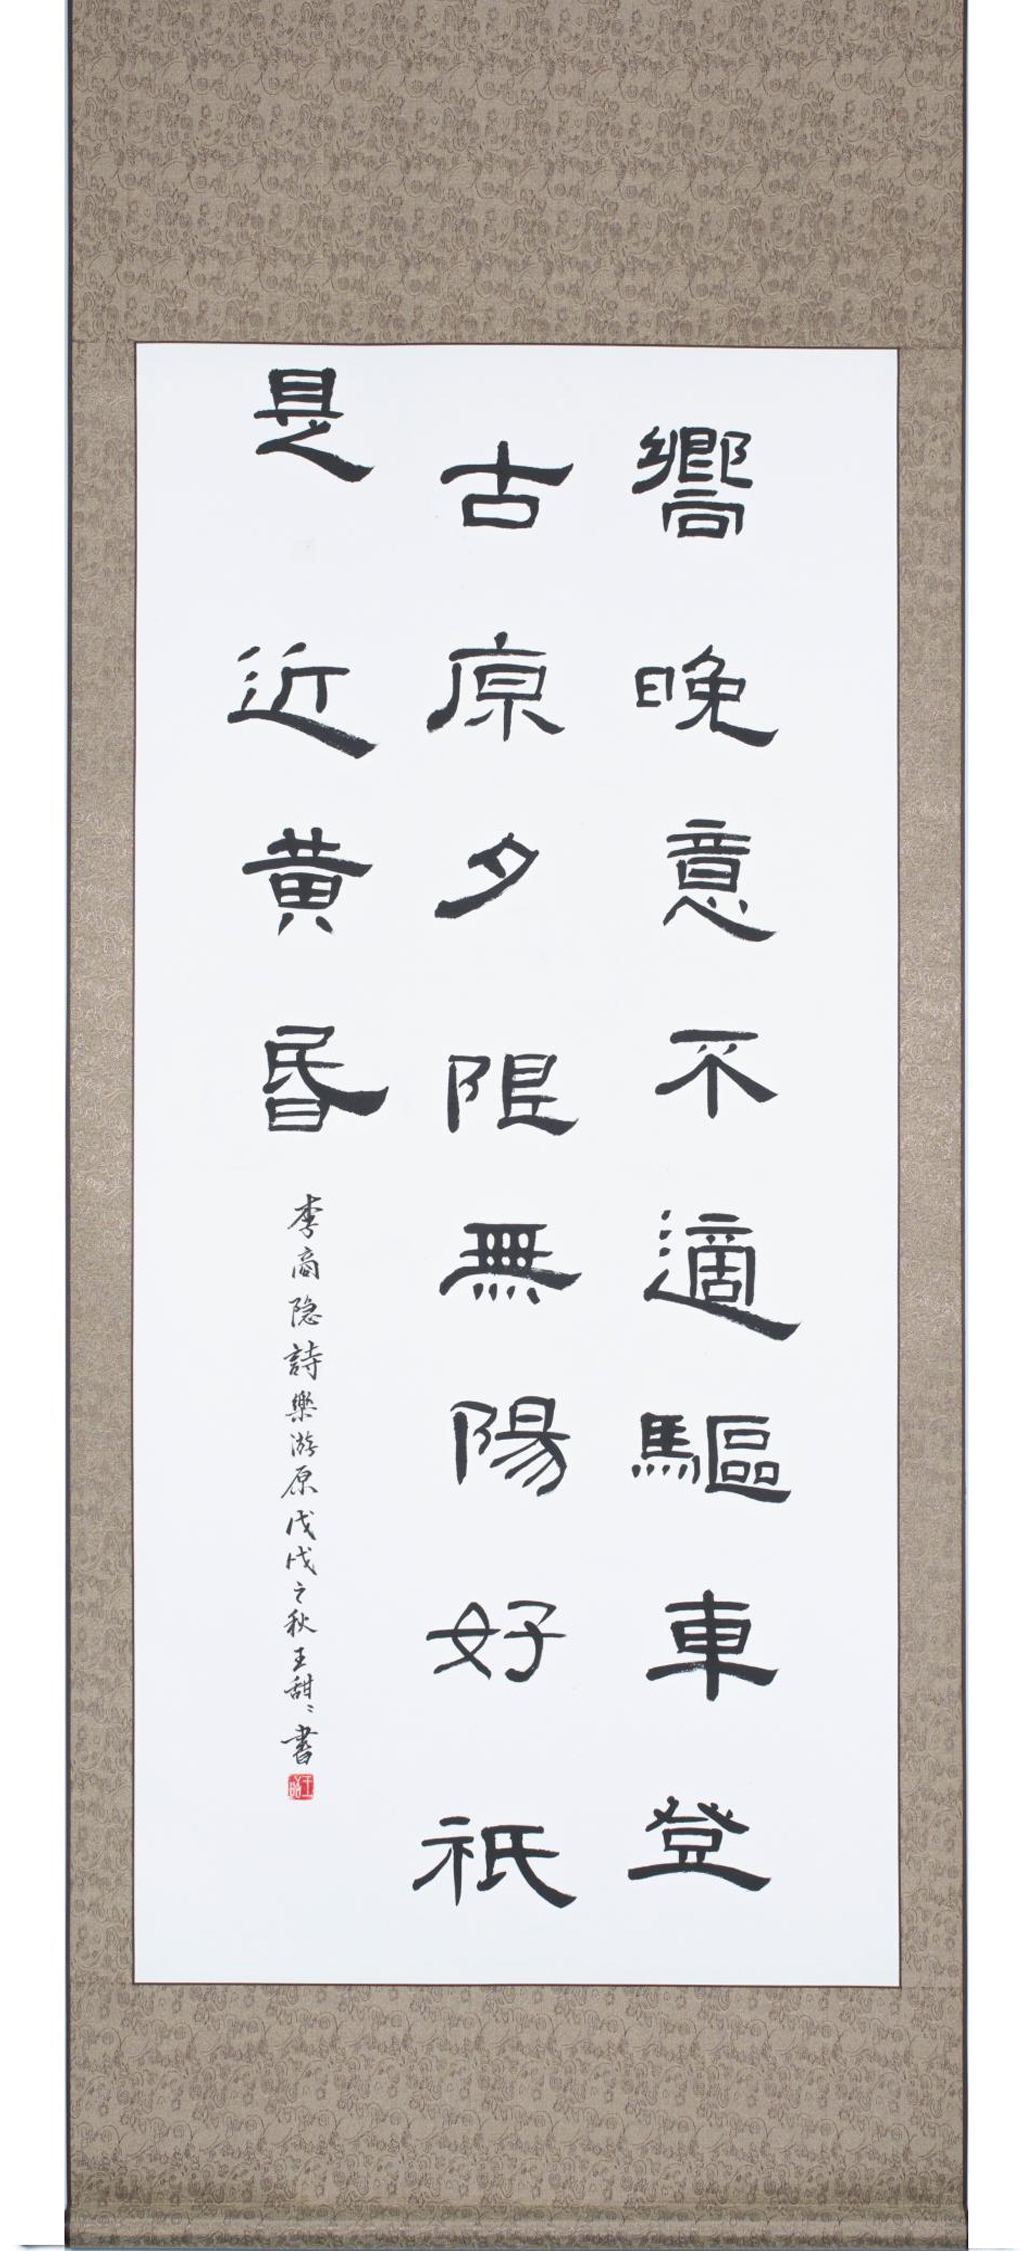 嚮晚意不適驅車登
古原夕限無陽好祇
是近黄昏
李商隐詩樂游原戊戌之秋王甜甜書